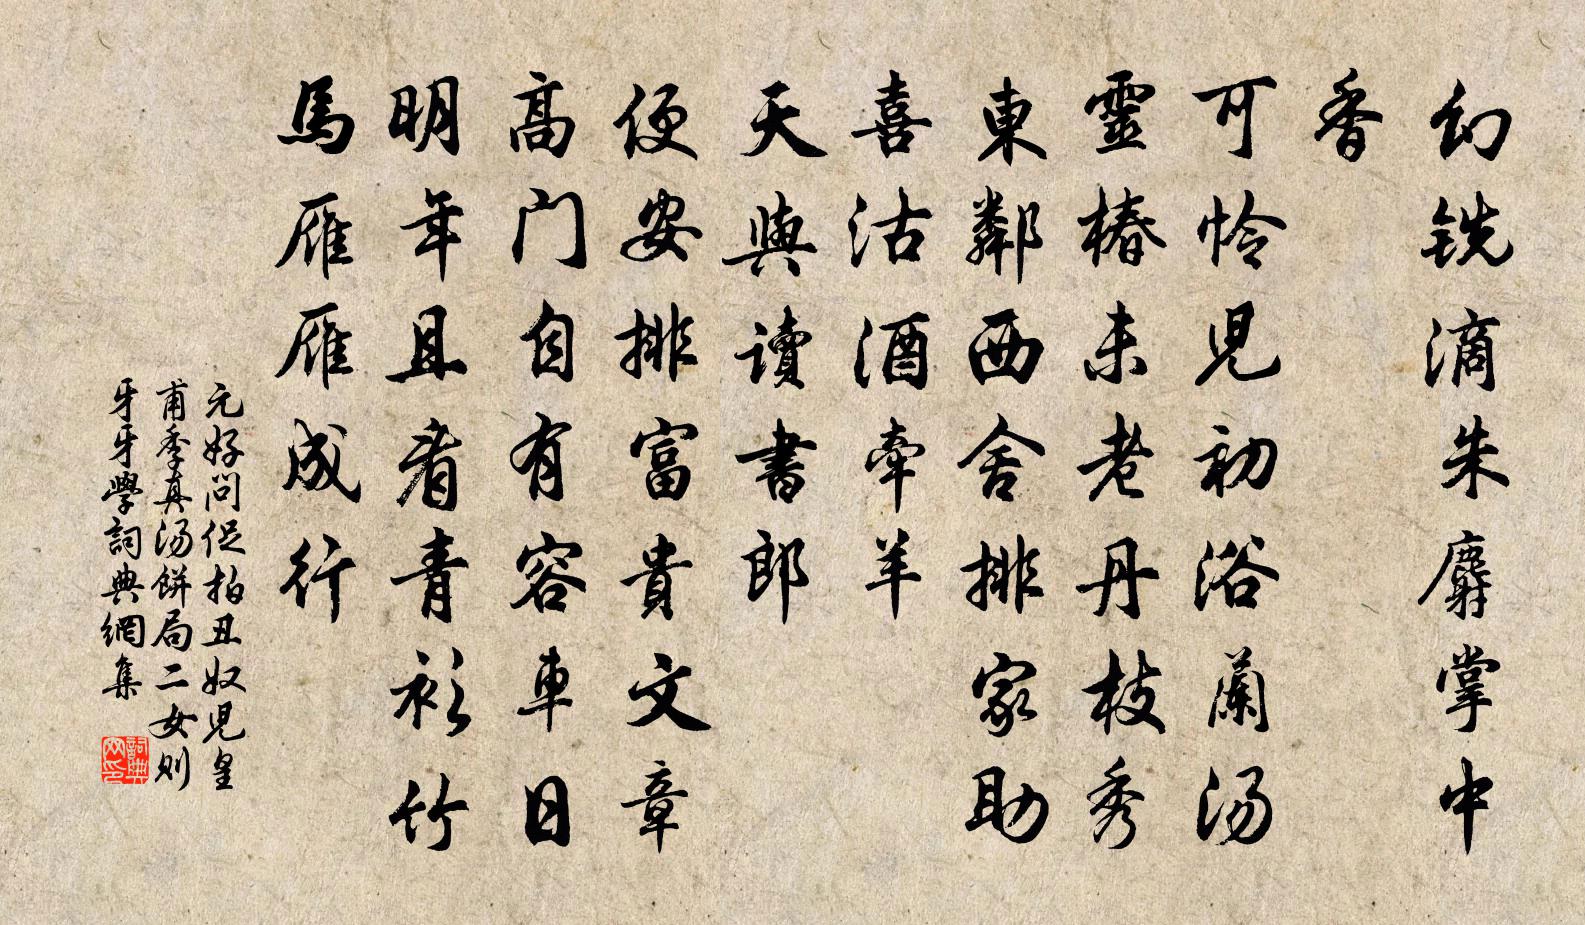 幻铣滴朱麝掌中
香
可怜兒初浴蘭汤
靈椿未老丹枝秀
東鄰西舍排家助
喜沽酒牽羊
天與讀書郎
便安排富貴文章
高门自有容車日
明年且看青衫竹
馬雁雁成行
元好問促拍丑奴兒皇
甫季真汤餅局二女则
牙牙學詞典網集
詞典
网印